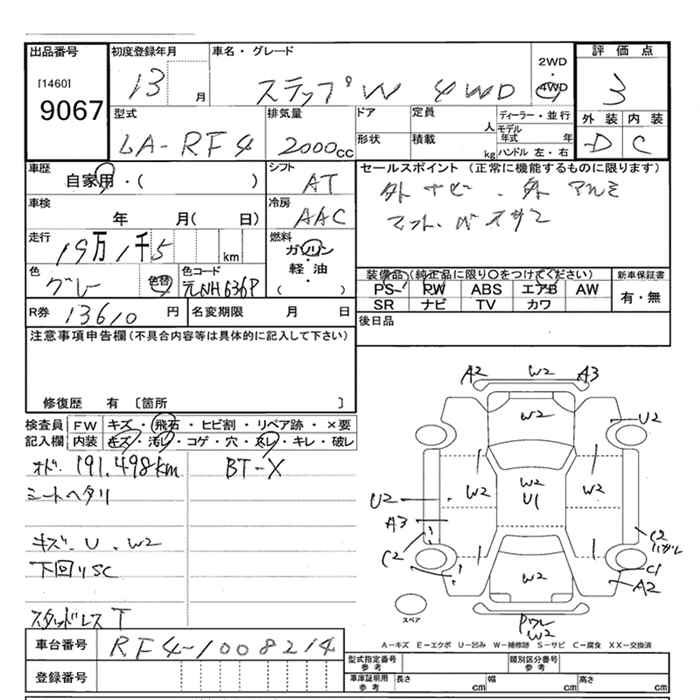 出品番号 初度登録年月 車名・グレード 評価点
[1460] 9067 13 月 ステップW 4WD 2WD 4WD 3
型式 排気量 ドア 定員 人 ディーラー・並行 外装 内装
LA-RF4 2000cc 形状 積載 kg モデル年式 年 ハンドル 左・右 D C
車歴 シフト セールスポイント (正常に機能するものに限ります)
自家用・( ) AT 外 ナビ. 外 アルミ
車検 冷房
年 月( 日) AAC
走行 燃料
19万1千5 km ガソリン
軽油
( )
色 色替 色コード 装備品(純正品に限り○をつけてください) 新車保証書
グレー 元NH636P PS PW ABS エアB AW 有・無
SR ナビ TV カワ
R券 13610 円 名変期限 月 日 後日品
注意事項申告欄(不具合内容等は具体的に記入して下さい)
修復歴 有 〔箇所 〕
検査員 FW キズ・飛石・ヒビ割・リペア跡・×要
記入欄 内装 キズ・汚レ・コゲ・穴・スレ・キレ・破レ
オド. 191,498km BT-X
シートヘタリ
キズ. U. W2
下回りSC
スタッドレス T
A2 W2 A3
W2
U2
W2 W2 U1 W2
U2
A3
C2
C2 ハガレ
C1
A2
W2
スペア
W2
A-キズ E-エクボ U-凹み W-補修跡 S-サビ C-腐食 XX-交換済
車台番号 RF4-1008214
登録番号
型式指定番号 参考 類別区分番号 参考
車庫証明用 参考 長さ cm 幅 cm 高さ cm